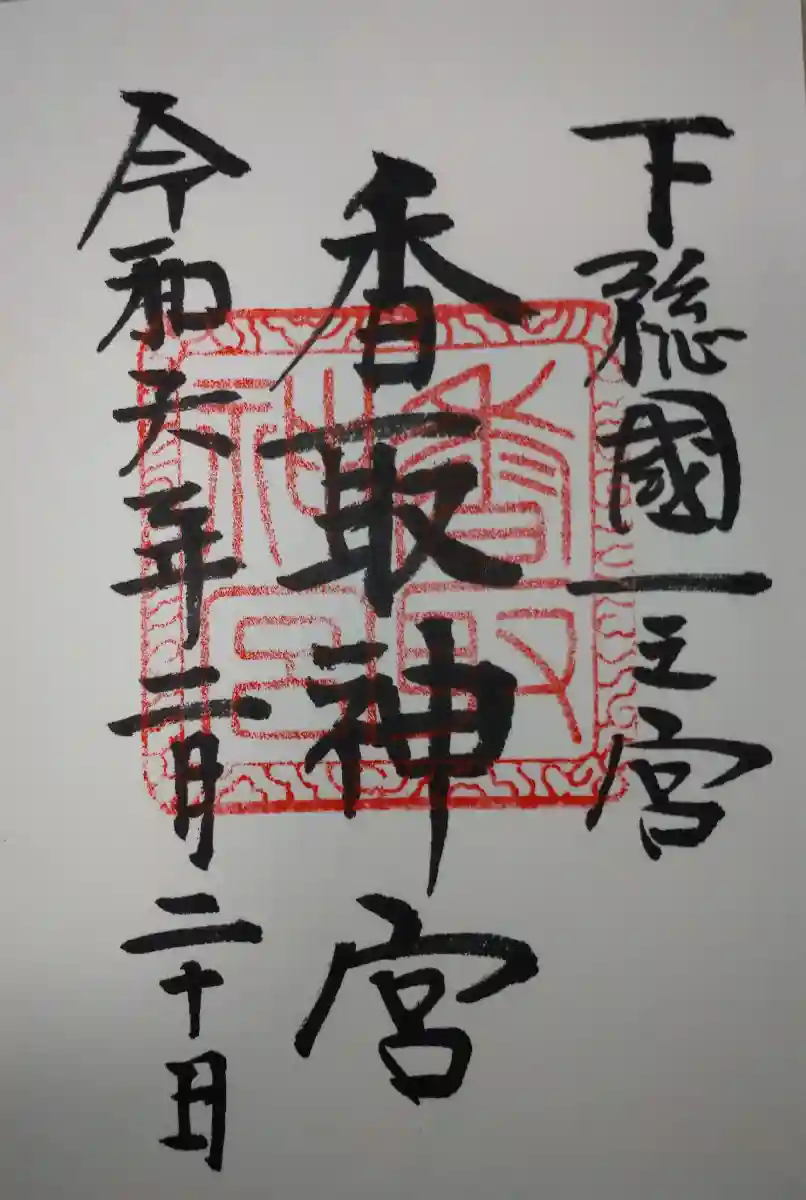 下総國一之宮
香取神宮
令和六年二月二十日
香取
神宮